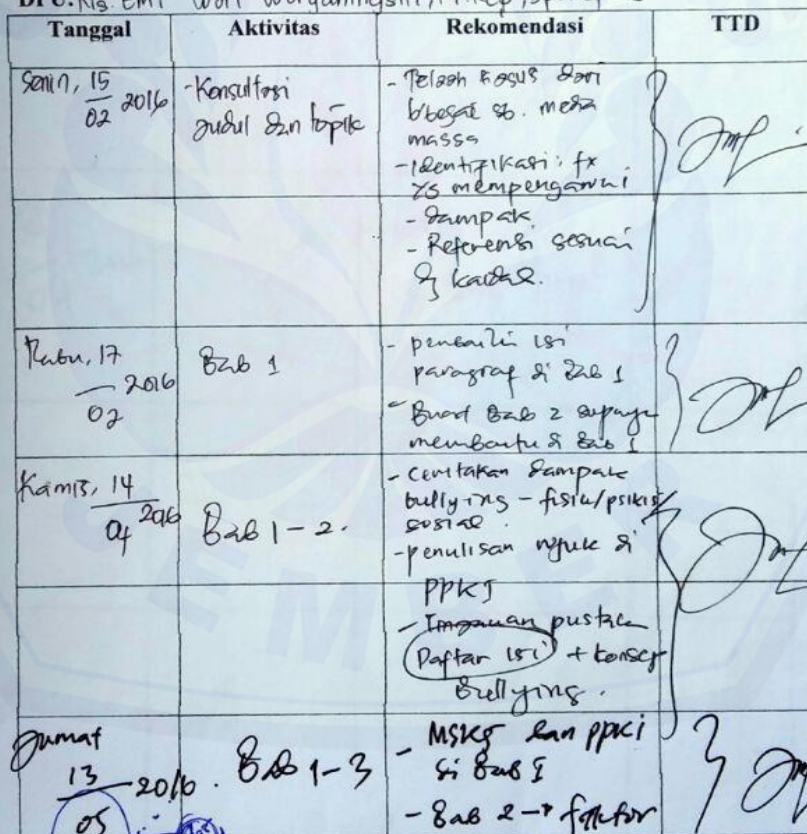 Tanggal Aktivitas Rekomendasi TTD
Senin, 15/02 2016
- Konsultasi
judul dan topik
- Telaah kasus dari
b'bagai sb. media
massa
- Identifikasi: fx
yg mempengaruhi
- dampak
- Referensi sesuai
Rabu, 17/02 2016
Bab 1
- perbaiki isi
paragraf di Bab 1
- Buat Bab 2 supaya
membantu di Bab 1
Kamis, 14/04 2016
Bab 1-2.
- ceritakan dampak
bullying - fisik/psikis/
sosial.
- penulisan rujuk di
PPKI
- pustaka
Daftar isi + konsep
Bullying.
Jumat
13/05 2016.
Bab 1-3
- MSKG dan PPKI
di Bab I
- Bab 2 → faktor